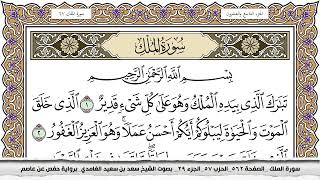 الجزء التاسع والعشرون
سورة الملك ٦٧
سورة الملك
بسم الله الرحمن الرحيم
تبارك الذي بيده الملك وهو على كل شيء قدير ١ الذي خلق
الموت والحيوة ليبلوكم أيكم أحسن عملا وهو العزيز الغفور ٢
سورة الملك . الصفحة ٥٦٢ الحزب ٥٧ الجزء ٢٩ بصوت الشيخ سعد بن سعيد الغامدي برواية حفص عن عاصم